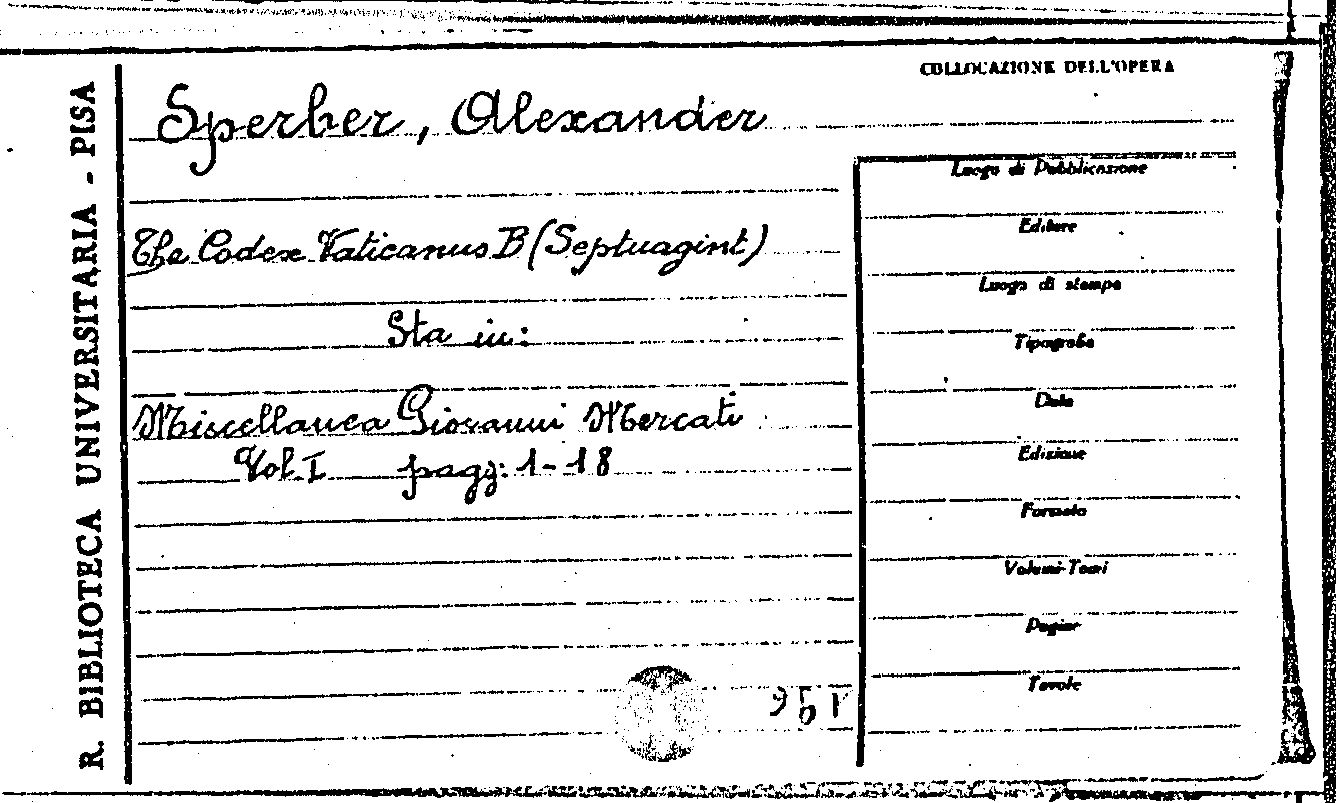 R. BIBLIOTECA UNIVERSITARIA - PISA
COLLOCAZIONE DELL'OPERA
Sperber, Alexander
The Codex Vaticanus B (Septuagint)
Sta in:
Miscellanea Giovanni Mercati
Vol. I pagg: 1-18
Luogo di Pubblicazione
Editore
Luogo di stampa
Tipografia
Data
Edizione
Formato
Volumi-Tomi
Pagine
Tavole